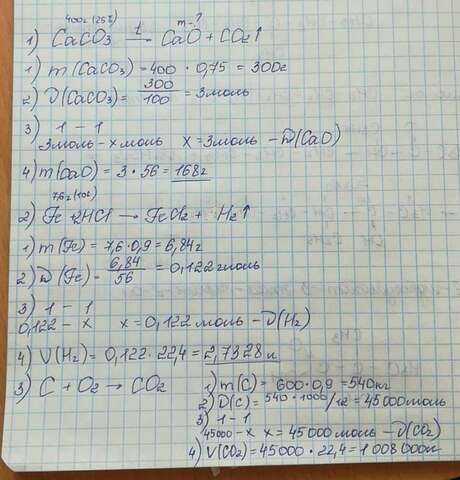 400г(25%) m-?
1) CaCO3 t→ CaO + CO2↑
1) m(CaCO3) = 400 · 0,75 = 300г
2) ν(CaCO3) = 300/100 = 3моль
3) 1 - 1
3моль - x моль x = 3моль - ν(CaO)
4) m(CaO) = 3 · 56 = 168г
7,6г(10%)
2) Fe + 2HCl → FeCl2 + H2↑
1) m(Fe) = 7,6 · 0,9 = 6,84г
2) ν(Fe) - 6,84/56 = 0,122моль
3) 1 - 1
0,122 - x x = 0,122 моль - ν(H2)
4) V(H2) = 0,122 · 22,4 = 2,7328л
3) C + O2 → CO2
1) m(C) = 600 · 0,9 = 540кг
2) ν(C) = 540 · 1000/12 = 45000моль
3) 1 - 1
45000 - x x = 45000моль - ν(CO2)
4) V(CO2) = 45000 · 22,4 = 1 008 000л